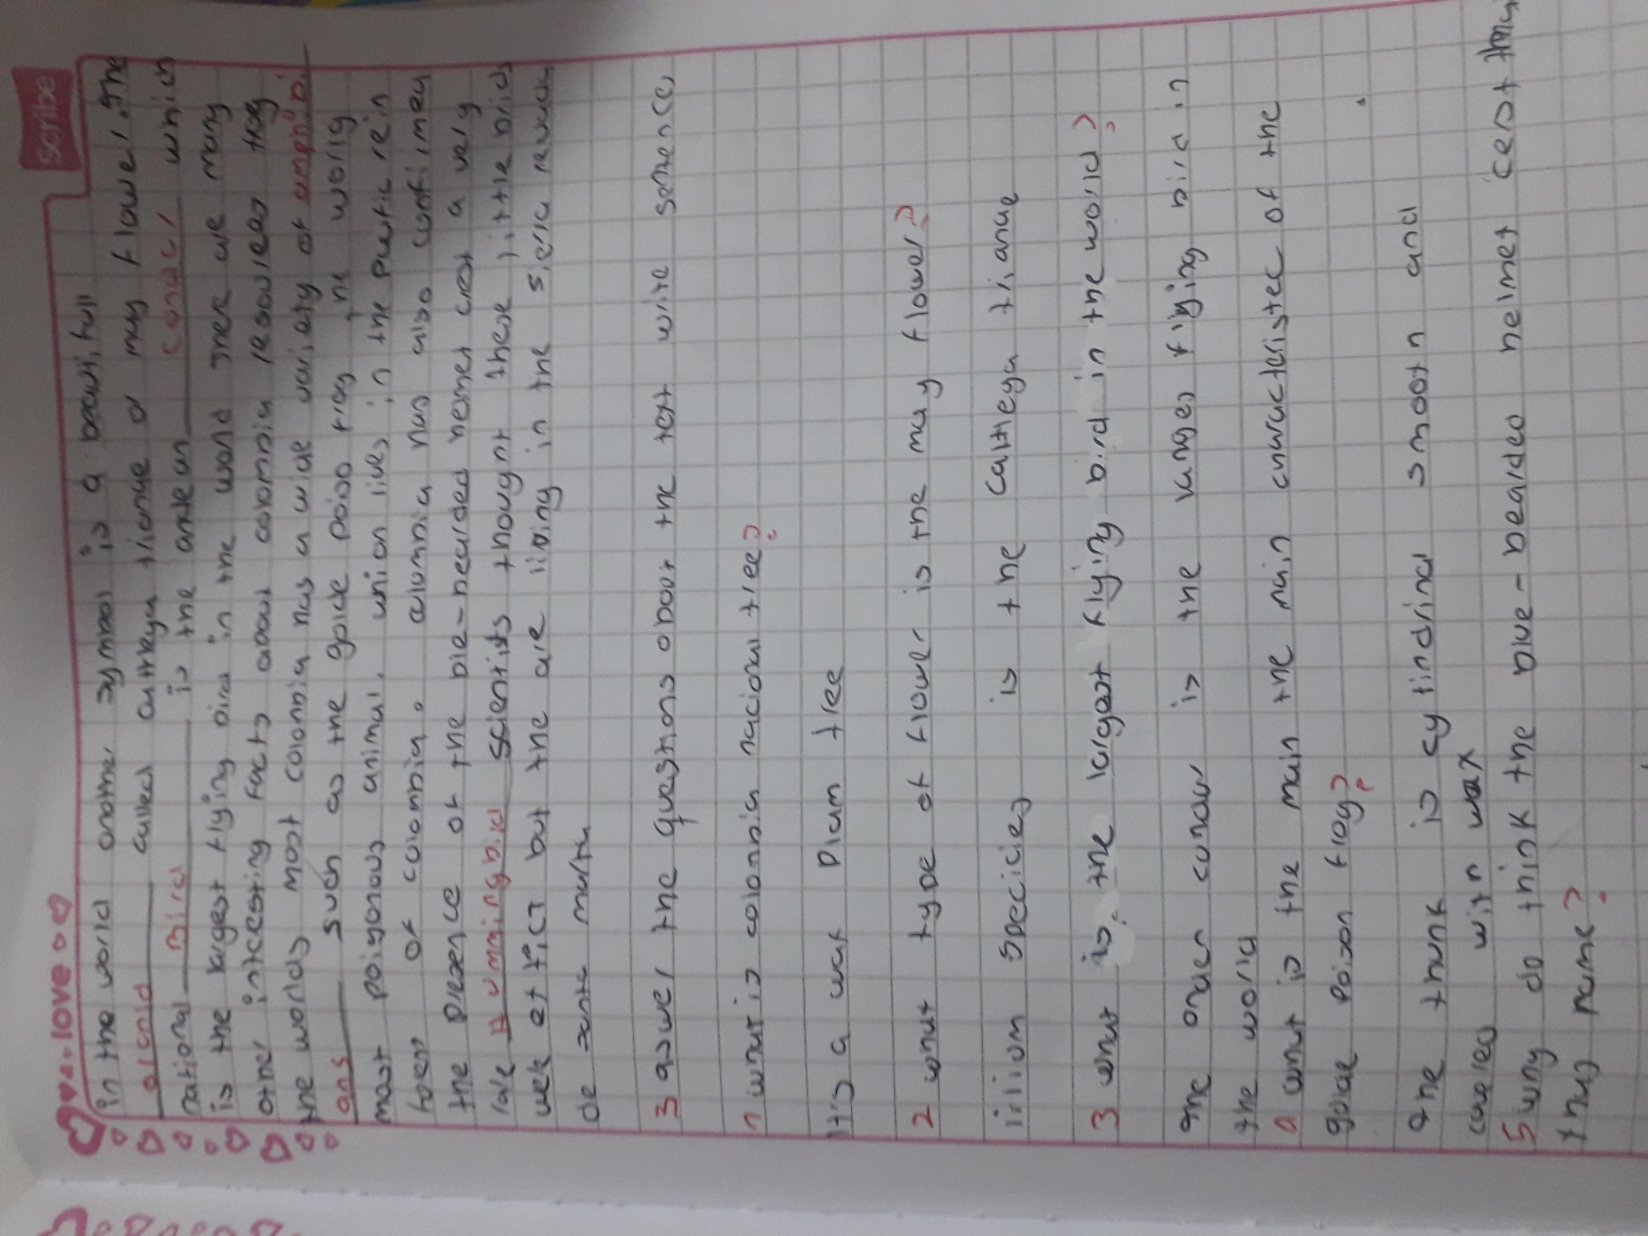 scribe
love
in the world another symbol is a beautifull
orchid called cattleya trianae o may flower. the
national Bird is the andean condor which
is the largest flying bird in the world There are many
other interesting facts about colombia resources they
the worlds most colombia has a wide variety of amphibi
ans such as the golde poiso frog the world
most poisonous animal, which lives in the pacific
of colombia. colombia has also confirmed
the presence of the ble-bearded helmet crest a very
rare Hummingbird scientists thought these little birds
were but the are living in the sierra nevada
de santa marta
3 aswer the questions about the text write sentences
1 what is colombia nacional tree?
It's a wax plam tree
2 what type of flower is the may flower?
lilium species is the cattleya trianae
3 what is the largest flying bird in the world?
the condor is the flying bird in
the world
what is the main the main characteristec of the
golde poison frog?
the trunk is cylindrical smooth and
covered with wax
5 why do think the blue-bearded helmet
name?